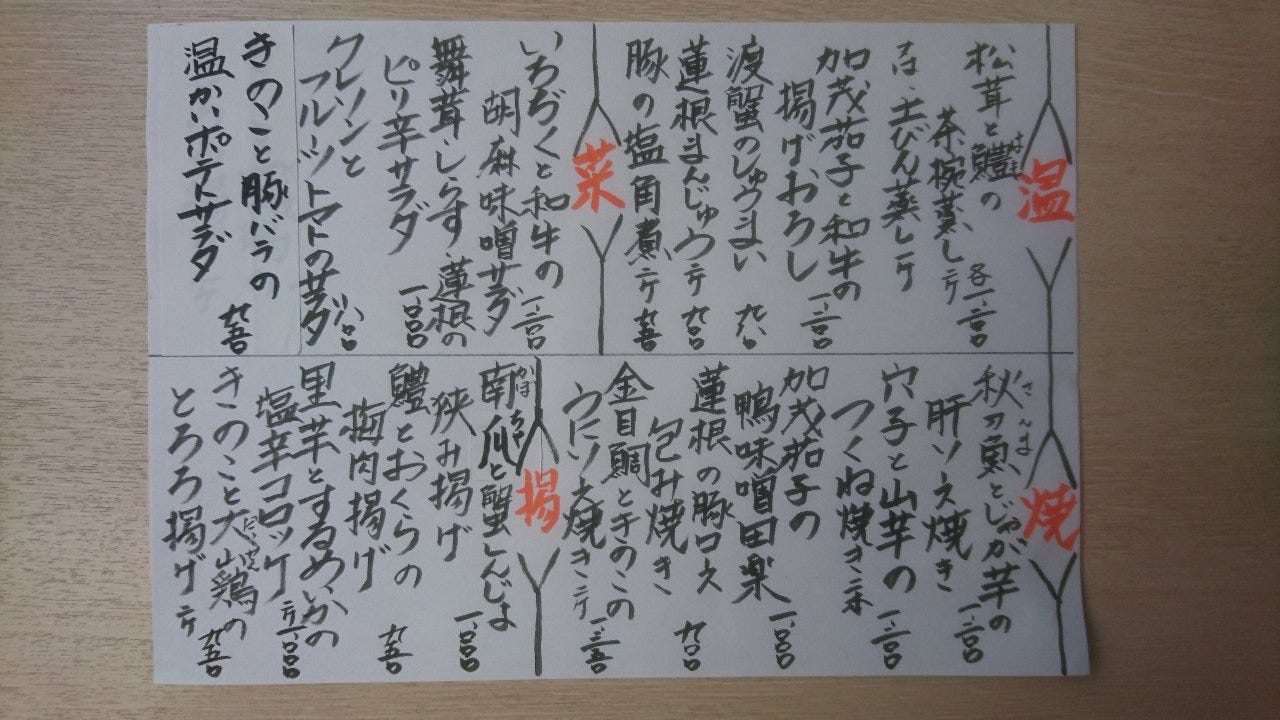 温
松茸と鱧のはも
茶椀蒸し 二ケ 各一、二〇〇
又は、土びん蒸し一ケ
加茂茄子と和牛の
揚げおろし 一、二〇〇
渡蟹のしゅうまい 九八〇
蓮根まんじゅう 二ケ 九〇〇
豚の塩角煮 二ケ 九五〇
菜
いちぢくと和牛の
胡麻味噌サラダ 一、二〇〇
舞茸、しらす、蓮根の
ピリ辛サラダ 一、〇〇〇
クレソンと
フルーツトマトのサラダ 一、一八〇
きのこと豚バラの
温かいポテトサラダ 九五〇
焼
秋刀魚とじゃが芋のさんま
肝ソース焼き 一、二〇〇
穴子と山芋の
つくね焼き 二本 一、二〇〇
加茂茄子の
鴨味噌田楽 一、〇〇〇
蓮根の豚ロース
包み焼き 九〇〇
金目鯛ときのこの
うにソース焼き 二ケ 一、三五〇
揚
南瓜と蟹しんじょかぼちゃ
狭み揚げ 一、〇〇〇
鱧とおくらの
梅肉揚げ 九五〇
里芋とするめいかの
塩辛コロッケ 二ケ 一、〇〇〇
きのこと大山鶏のだいせん
とろろ揚げ 二ケ 九五〇